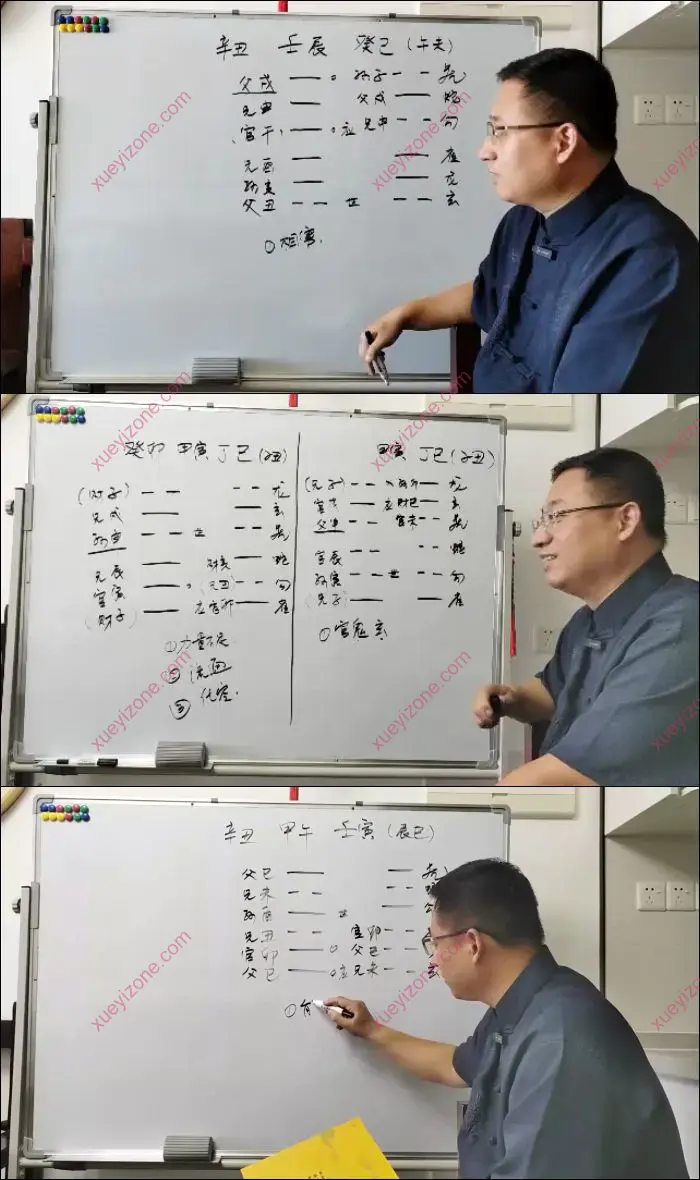 辛丑 壬辰 癸巳(午未)
父戌 孙子 虎
兄申 父戌 蛇
官午 应 兄申 勾
兄酉 雀
孙亥 龙
父丑 世 玄
①
xueyizone.com
xueyizone.com
xueyizone.com
xueyizone.com
癸卯 甲寅 丁巳(子丑)
(财子) 龙
兄戌 玄
世 虎
兄辰 财亥 蛇
官寅 (兄丑) 勾
(财子) 应 官卯 雀
①力量
②
③
甲寅 丁巳(子丑)
(兄子) 龙
官戌 应 财巳 玄
父申 官未 虎
官辰 蛇
孙寅 世 勾
兄子 雀
①官鬼玄
xueyizone.com
xueyizone.com
xueyizone.com
xueyizone.com
辛丑 甲午 壬寅(辰巳)
父巳 虎
兄未
孙酉 世
兄丑 官卯
官卯 父巳
父巳 应 兄未 玄
①
xueyizone.com
xueyizone.com
xueyizone.com
xueyizone.com